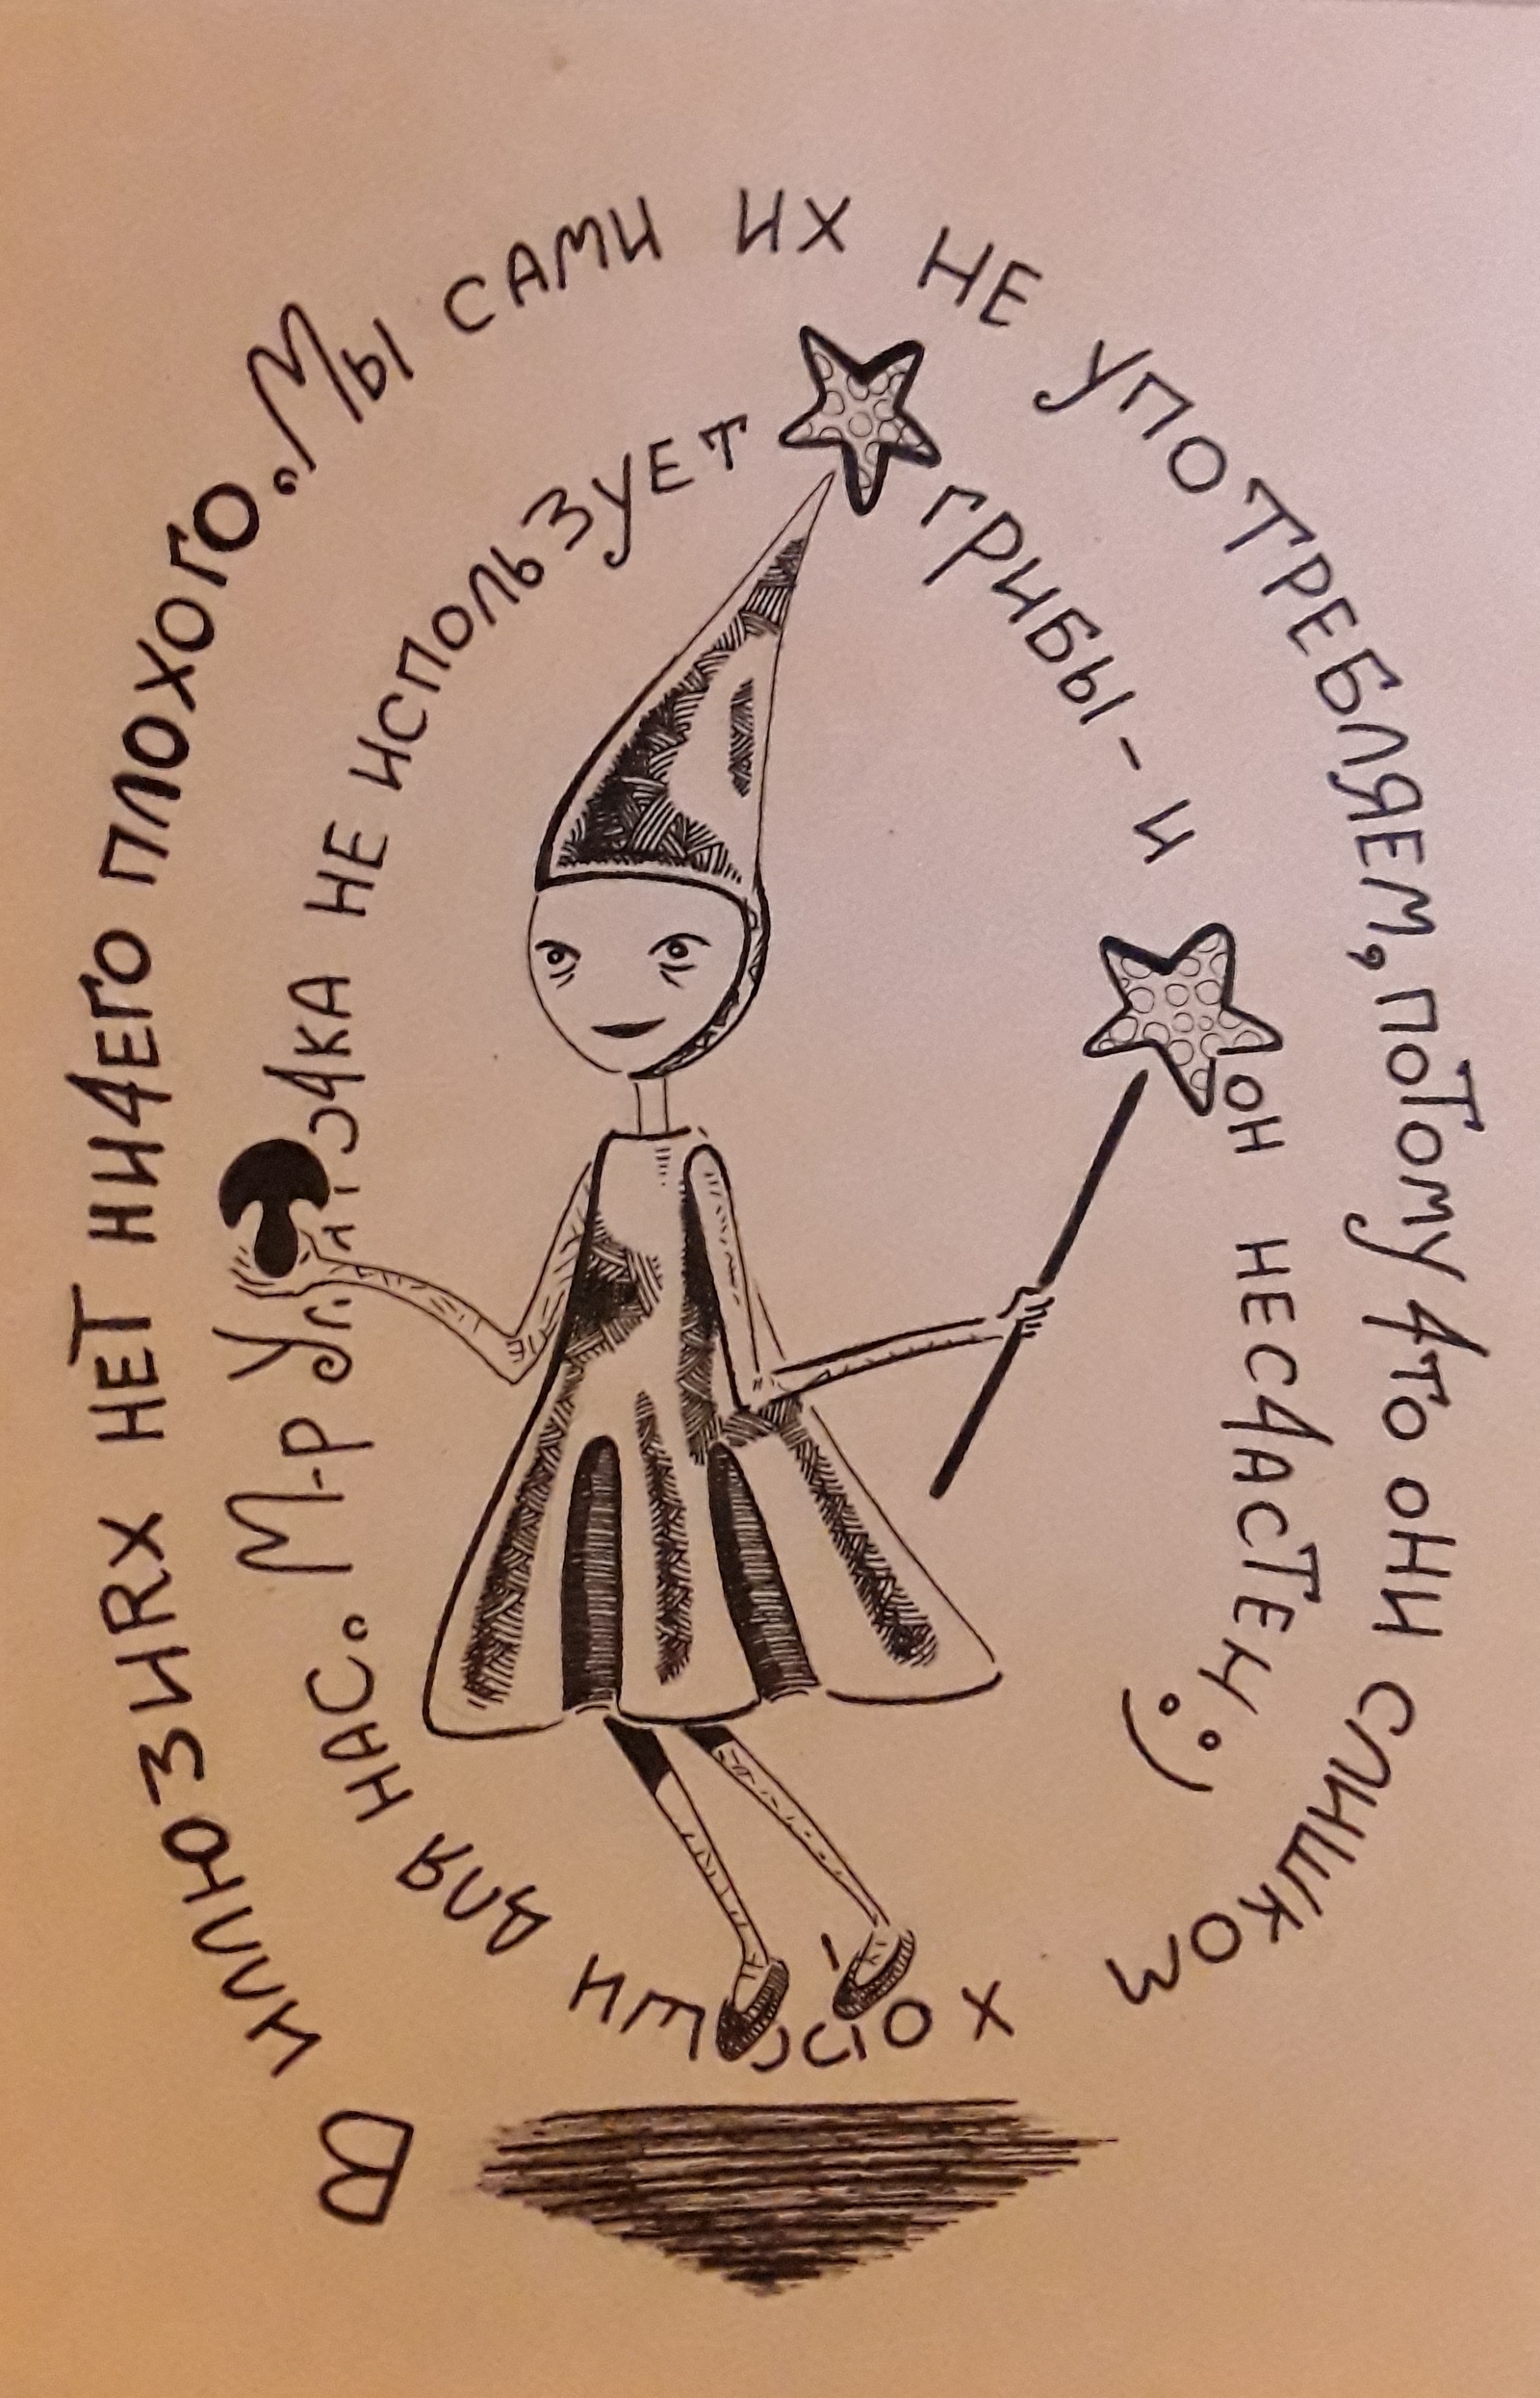 В иллюзиях нет ничего плохого. Мы сами их не употребляем, потому что они слишком
хороши для нас. М-р Улиточка не использует грибы - и он несчастен :)